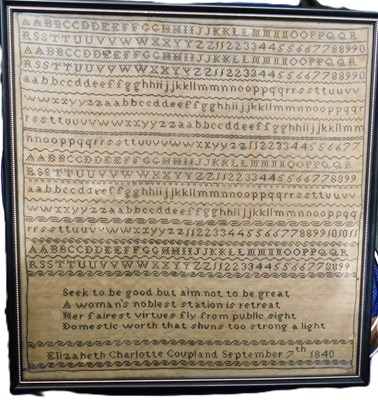 AABBCCDDEEFFGGHHIIJJKKLLMMNNOOPPQQR
RSSTTUUVVWWXXYYZZ1122334455667788990
AABBCCDDEEFFGGHHIIJJKKLLMMNNOOPPQQR
RSSTTUUVVWWXXYYZZ1122334455667788990
aabbccddeeffgghhiijjkkllmmnnooppqqrrssttuuvv
wwxxyyzzaabbccddeeffgghhiijjkkllmmnnooppqqr
rssttuuvvwwxxyyzzaabbccddeeffgghhiijjkkllmm
nnooppqqrrssttuuvvwwxxyyzz11223344556677
AABBCCDDEEFFGGHHIIJJKKLLMMNNOOPPQQR
RSSTTUUVVWWXXYYZZ112233445566778899
aabbccddeeffgghhiijjkkllmmnnooppqqrrssttuuvv
wwxxyyzzaabbccddeeffgghhiijjkkllmmnnooppqq
rrssttuuvvwwxxyyzz112233445566778899101011
AABBCCDDEEFFGGHHIIJJKKLLMMNNOOPPQQR
RSSTTUUVVWWXXYYZZ112233445566778899
Seek to be good but aim not to be great
A woman's noblest station is retreat
Her fairest virtues fly from public sight
Domestic worth that shuns too strong a light
Elizabeth Charlotte Coupland September 7th 1840